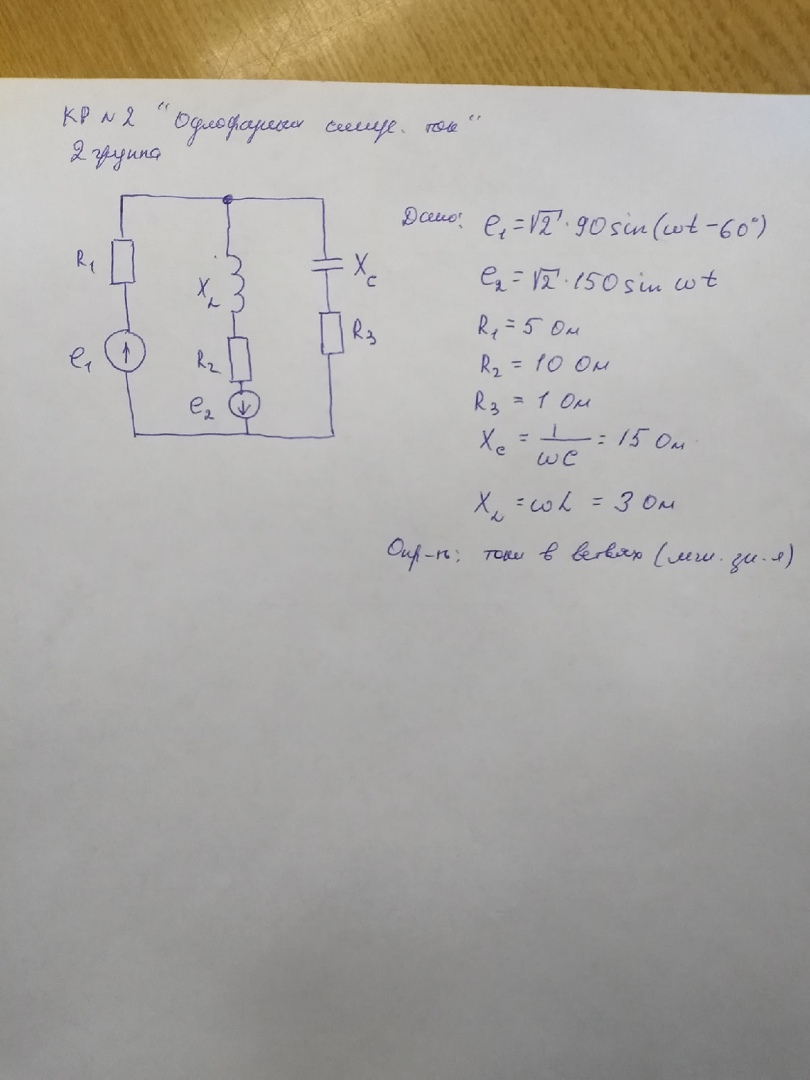 КР №2 "Однофазный синус. ток"
2 группа
R₁
e₁
X_L
R₂
e₂
X_C
R₃
Дано: e₁ = √2 · 90 sin(ωt − 60°)
e₂ = √2 · 150 sin ωt
R₁ = 5 Ом
R₂ = 10 Ом
R₃ = 1 Ом
X_C = 1/ωC = 15 Ом
X_L = ωL = 3 Ом
Опр-ть: токи в ветвях (мгн. зн-я)